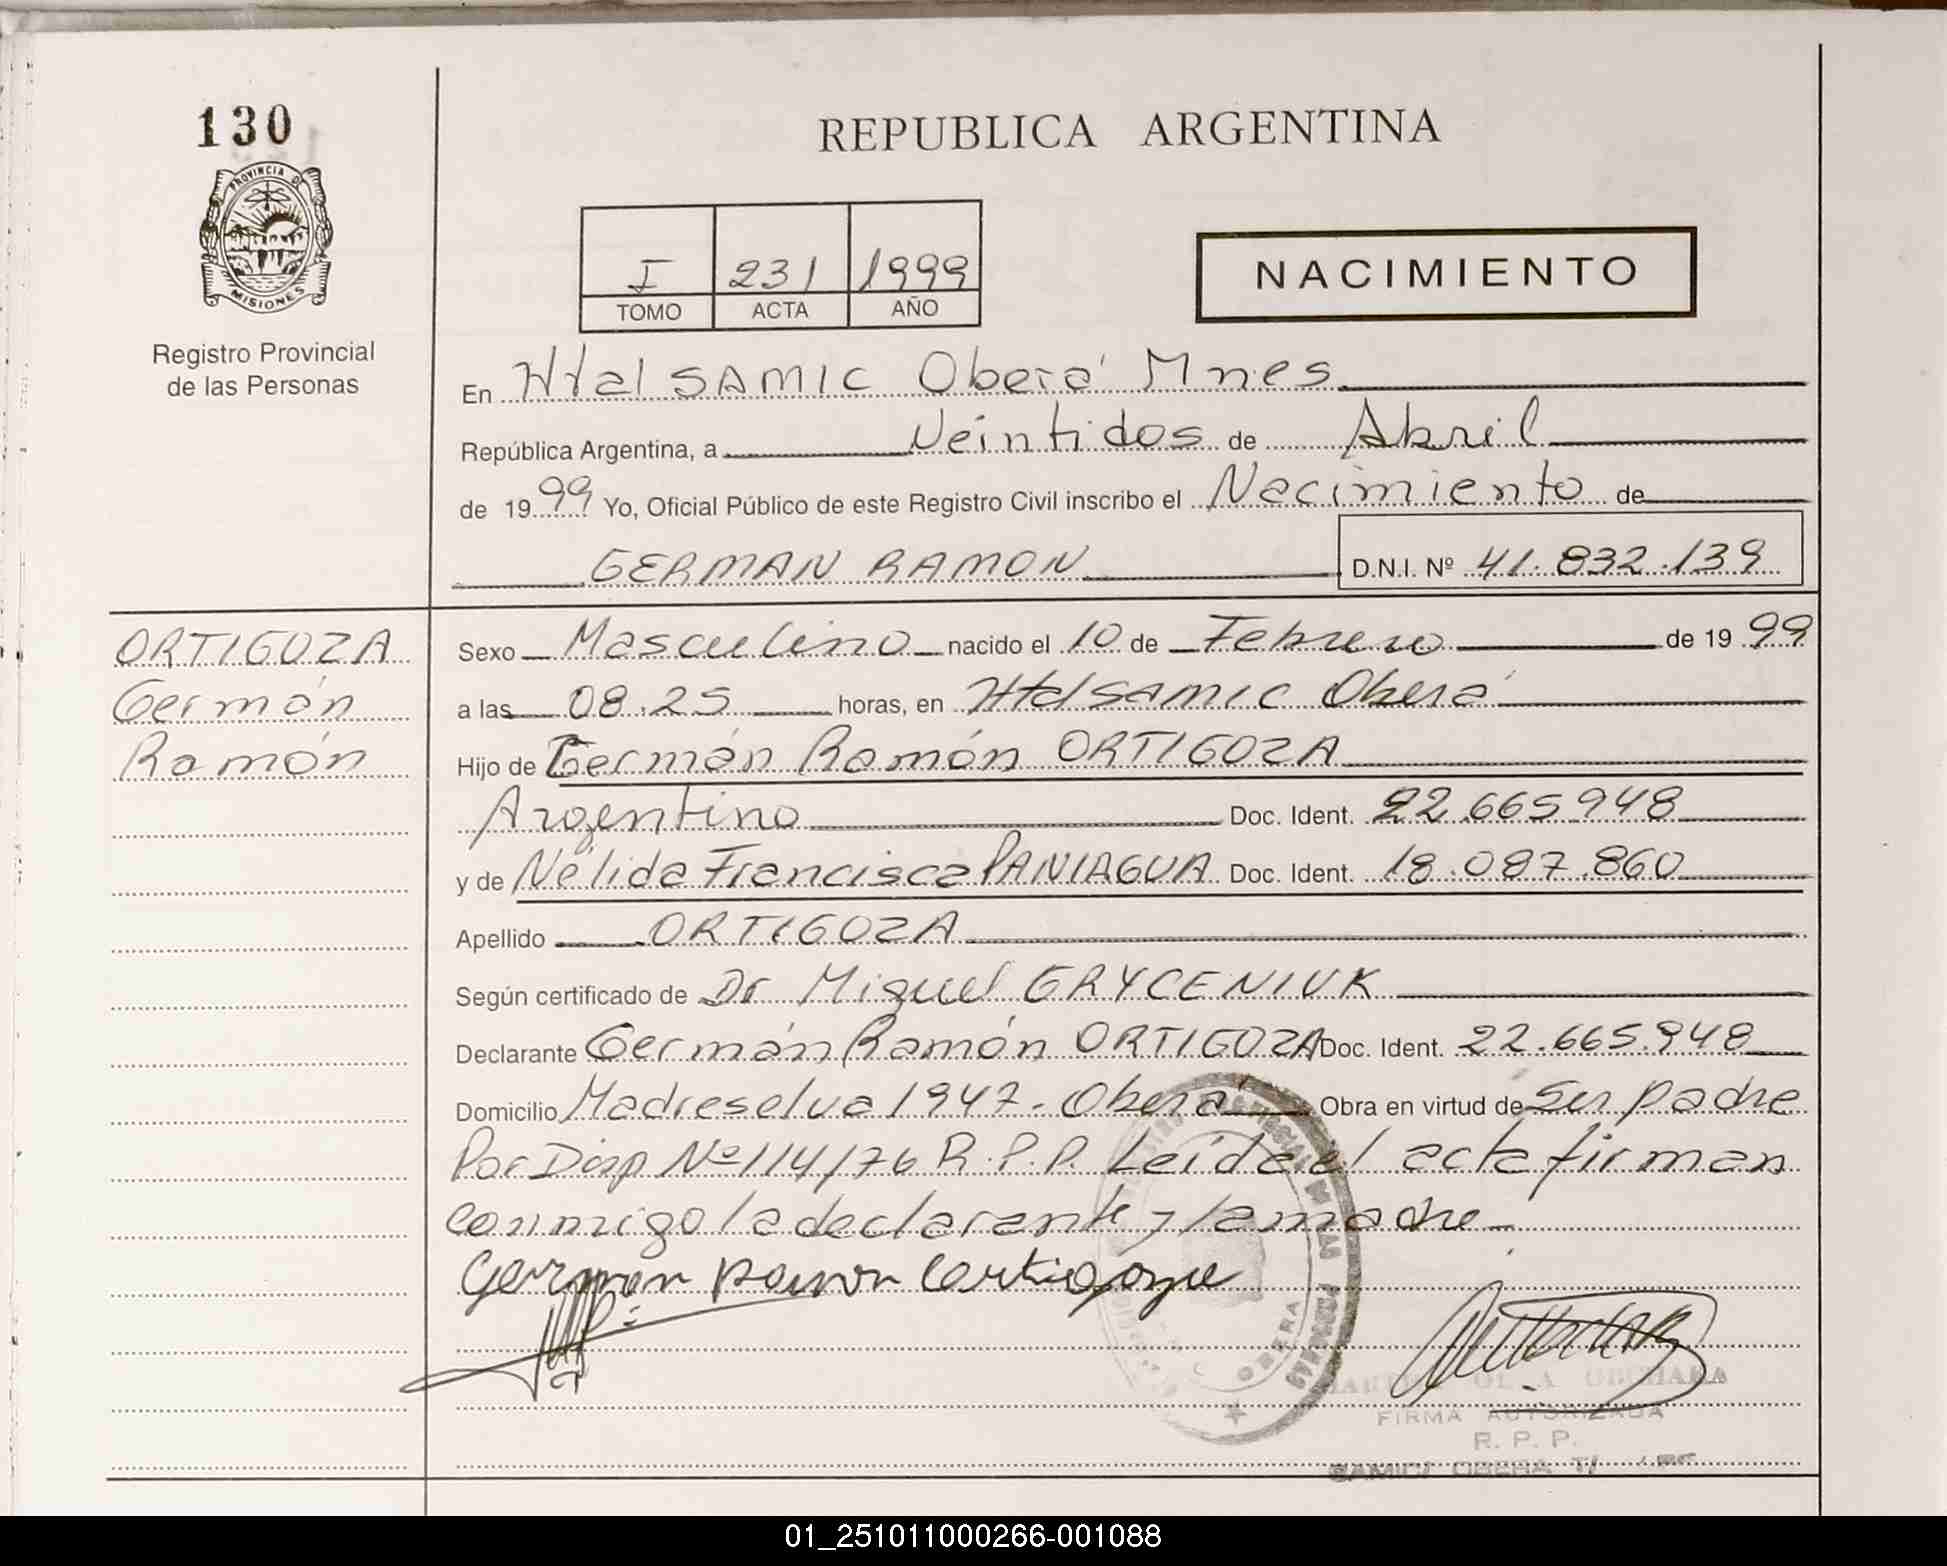 130
REPUBLICA ARGENTINA
PROVINCIA DE
MISIONES
Registro Provincial
de las Personas
I 231 1999
TOMO ACTA AÑO
NACIMIENTO
En Htal SAMIC Oberá Mnes
República Argentina, a Veintidos de Abril
de 1999 Yo, Oficial Público de este Registro Civil inscribo el Nacimiento de
GERMAN RAMON D.N.I. Nº 41.832.139
ORTIGOZA
Germán
Ramón
Sexo Masculino nacido el 10 de Febrero de 1999
a las 08.25 horas, en Htal SAMIC Oberá
Hijo de Germán Ramón ORTIGOZA
Argentino Doc. Ident. 22.665.948
y de Nélida Francisca PANIAGUA Doc. Ident. 18.087.860
Apellido ORTIGOZA
Según certificado de Dr Miguel GRYCENIUK
Declarante Germán Ramón ORTIGOZA Doc. Ident. 22.665.948
Domicilio Madreselva 1947 - Oberá Obra en virtud de su padre
Por Disp Nº 114/76 R.P.P. Leída el acta firman
conmigo la declarante y la madre
German Ramon
OBERA
FIRMA AUTORIZADA
R. P. P.
SAMIC OBERA
01_251011000266-001088